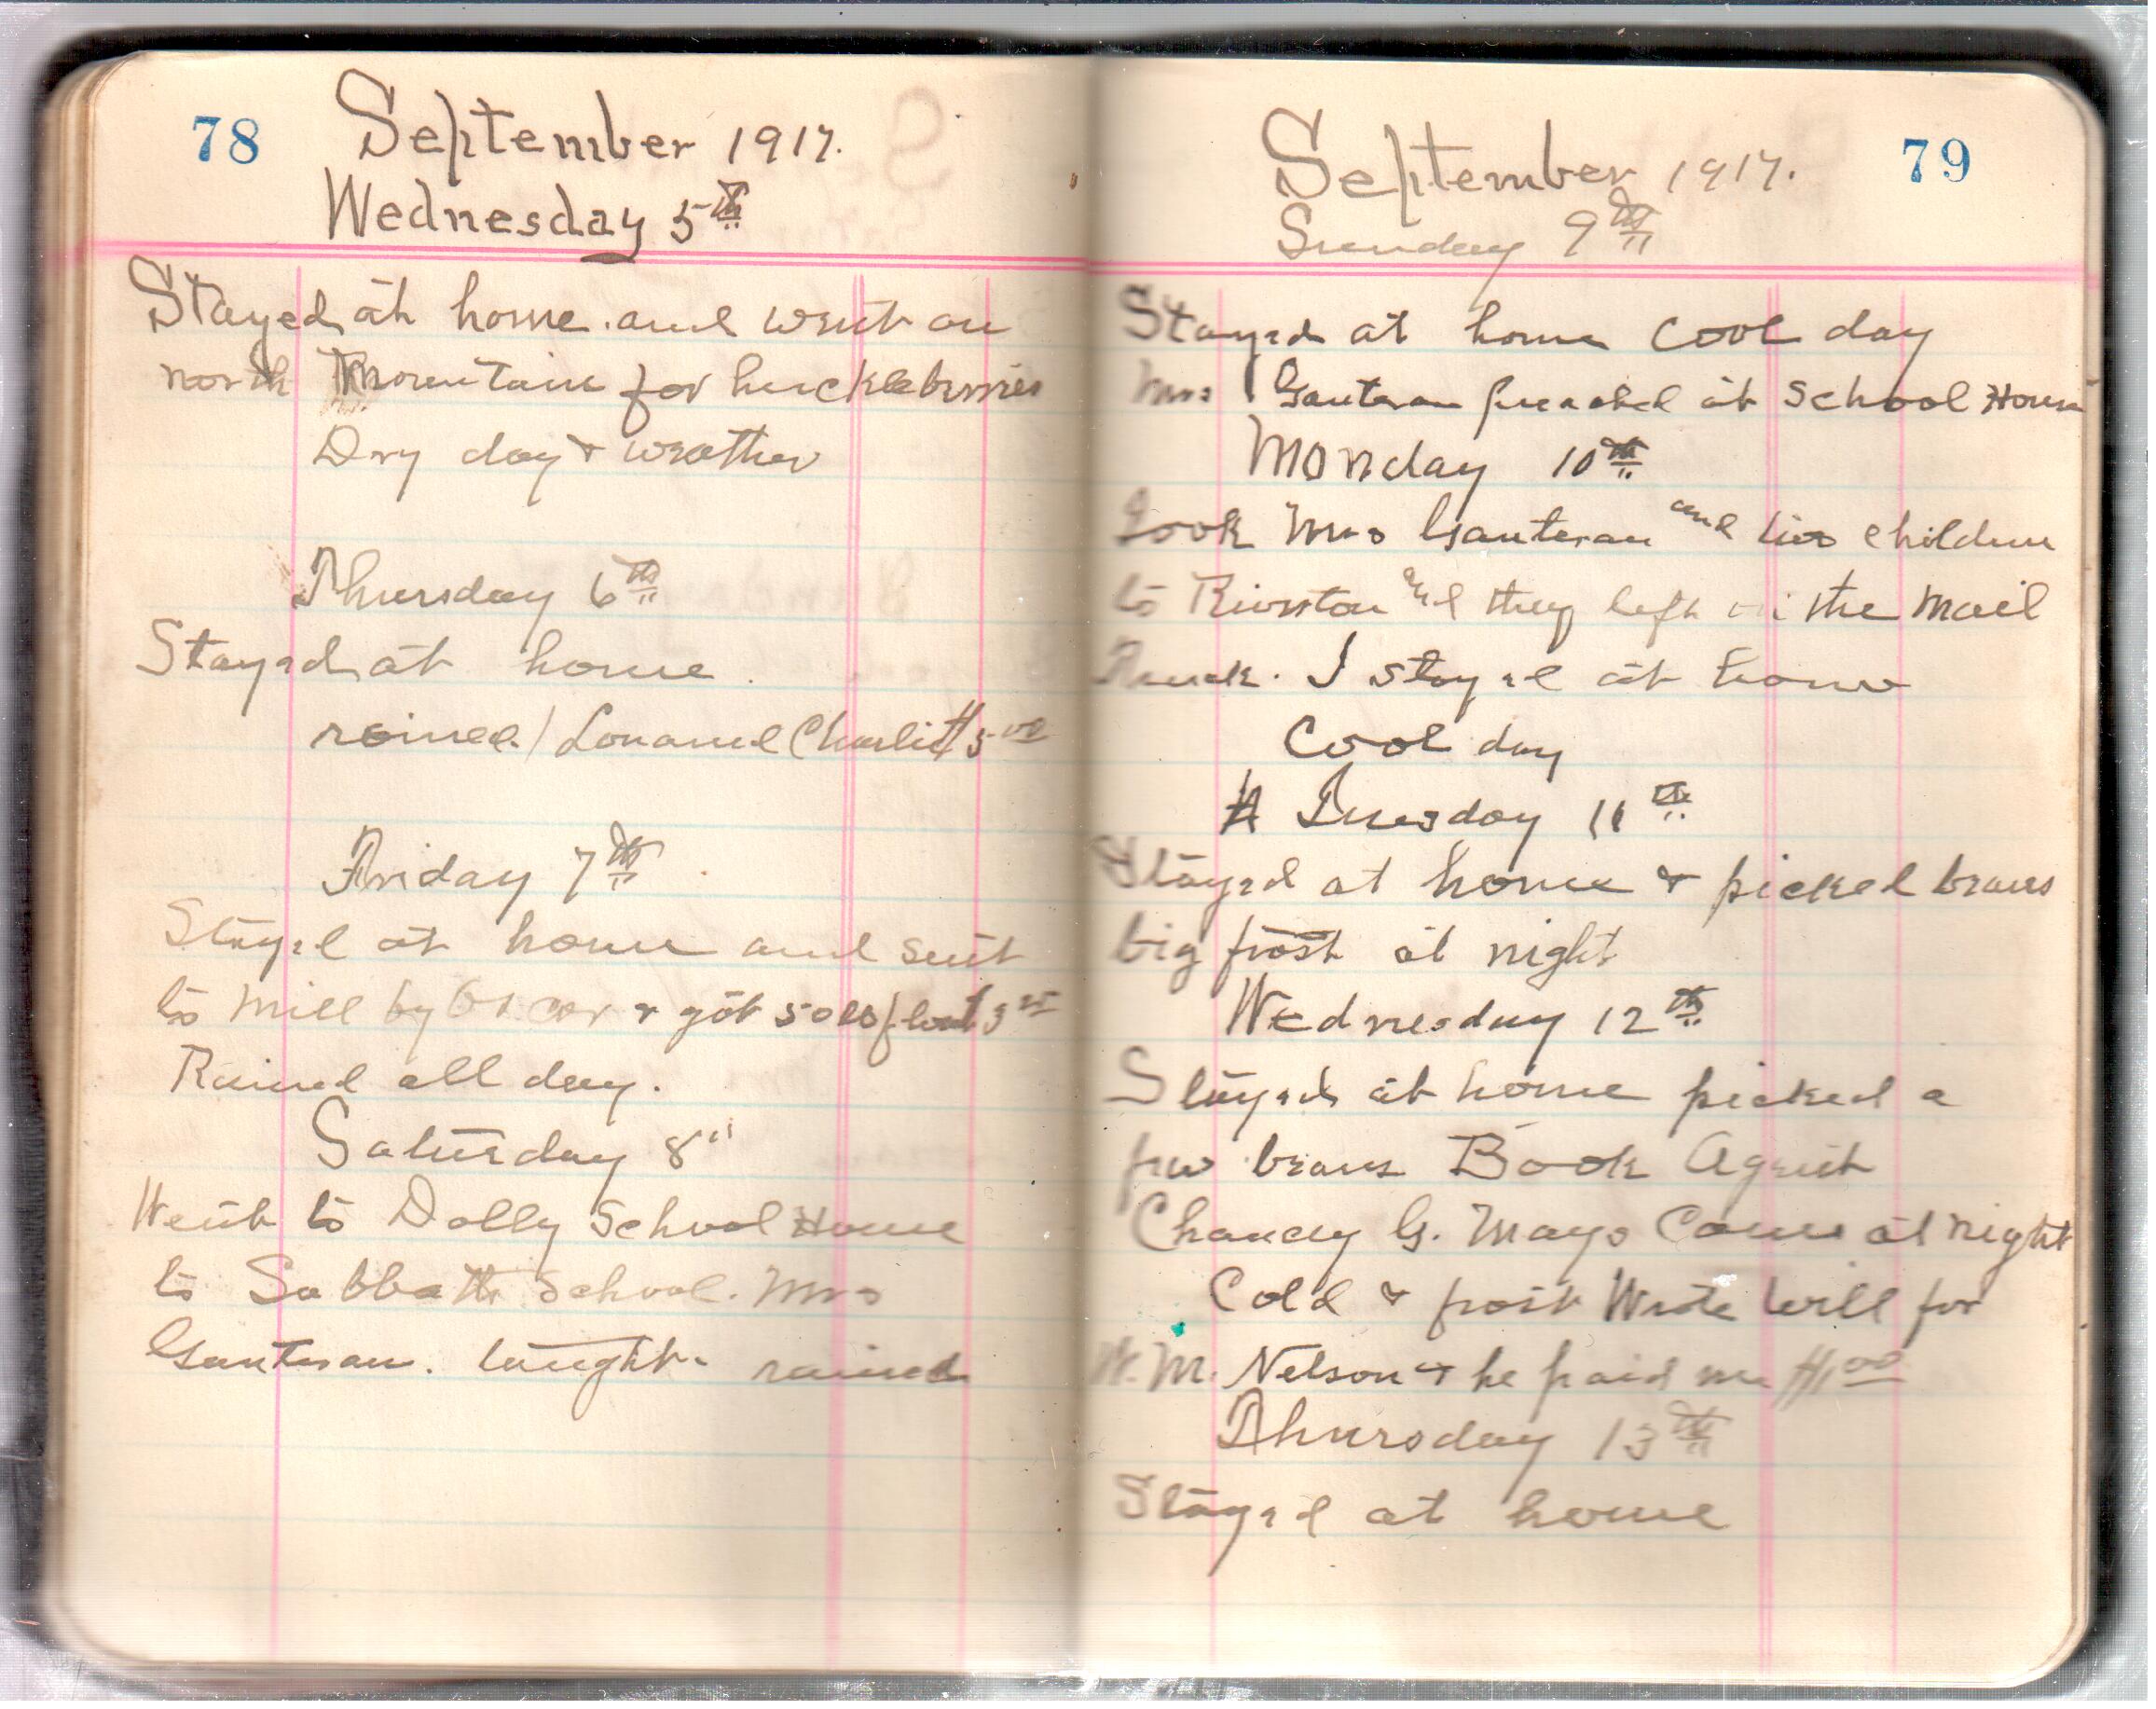 78
September 1917.
Wednesday 5th
Stayed at home and went on
north Mountain for huckleberries
Dry day & weather
Thursday 6th
Stayed at home.
rained / Loaned Charlie $5.00
Friday 7th
Stayed at home and sent
to mill by car & got 50 lbs flour $3.25
Rained all day.
Saturday 8"
Went to Dolly School House
to Sabbath School. Mrs
Ganteran. taught. rained
79
September 1917.
Sunday 9th
Stayed at home cool day
Mrs Ganteran preached at School House
Monday 10th
Took Mrs Ganteran and children
to Riverton and they left on the mail
Truck. I stayed at home
Cool day
Tuesday 11th
Stayed at home & picked beans
big frost at night
Wednesday 12th
Stayed at home picked a
few beans Book Agent
Chancey G. Mays Came at night
Cold & frost Wrote will for
W. M. Nelson & he paid me $1.00
Thursday 13th
Stayed at home